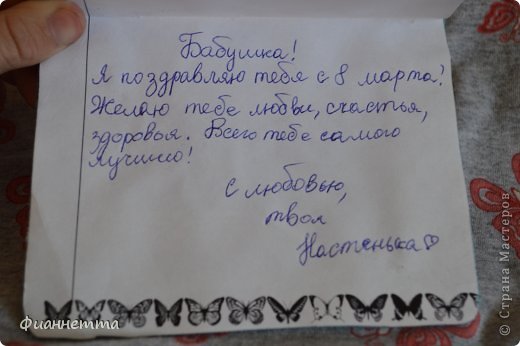 Бабушка!
Я поздравляю тебя с 8 марта!
Желаю тебе любви, счастья,
здоровья. Всего тебе самого
лучшего!
с любовью,
твоя
Настенька♡
Фианнетта
© Страна Мастеров